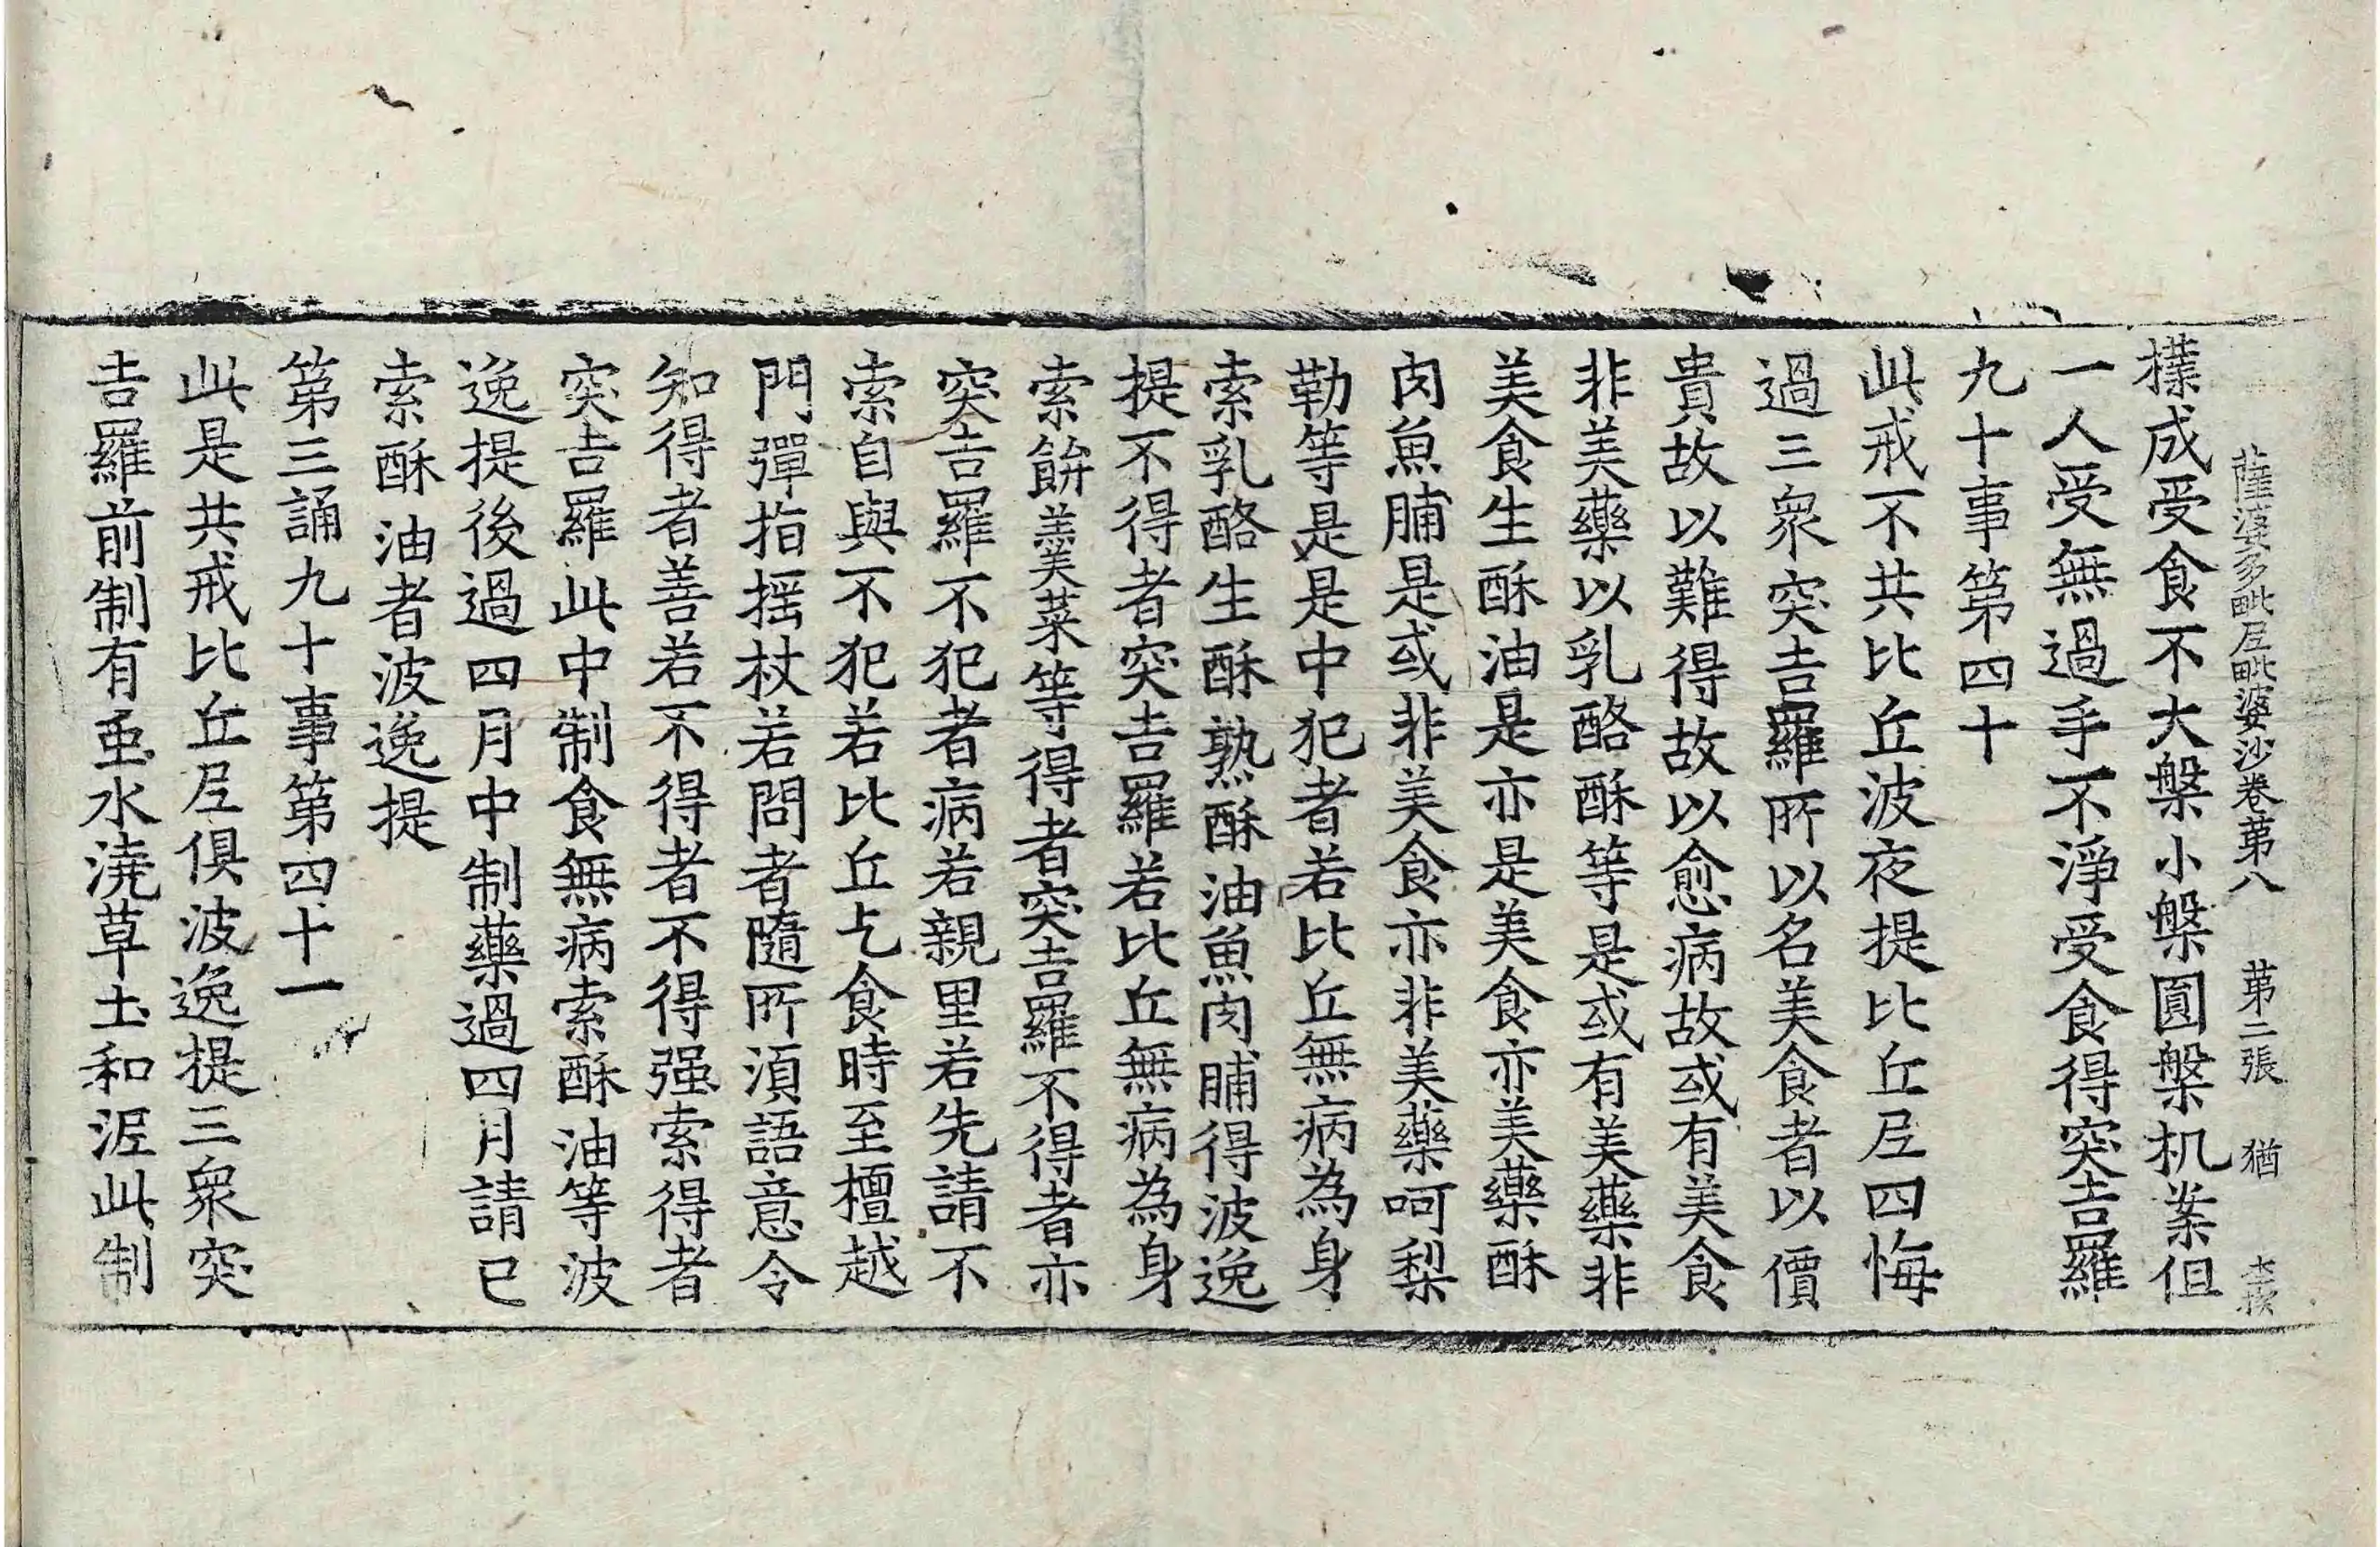 薩婆多毗尼毗婆沙卷苐八 苐二張 猶
檏成受食不大槃小槃圓槃机案但
一人受無過手不淨受食得突吉羅
九十事第四十
此戒不共比丘波夜提比丘尼四悔
過三衆突吉羅所以名美食者以價
貴故以難得故以愈病故或有美食
非美藥以乳酪酥等是或有美藥非
美食生酥油是亦是美食亦美藥酥
肉魚脯是或非美食亦非美藥呵梨
勒等是是中犯者若比丘無病為身
索乳酪生酥熟酥油魚肉脯得波逸
提不得者突吉羅若比丘無病為身
索餅羹菜等得者突吉羅不得者亦
突吉羅不犯者病若親里若先請不
索自與不犯若比丘乞食時至檀越
門彈指揺杖若問者隨所湏語意令
知得者善若不得者不得强索得者
突吉羅此中制食無病索酥油等波
逸提後過四月中制藥過四月請已
索酥油者波逸提
第三誦九十事第四十一
此是共戒比丘尼俱波逸提三衆突
吉羅前制有虫水澆草土和泥此制